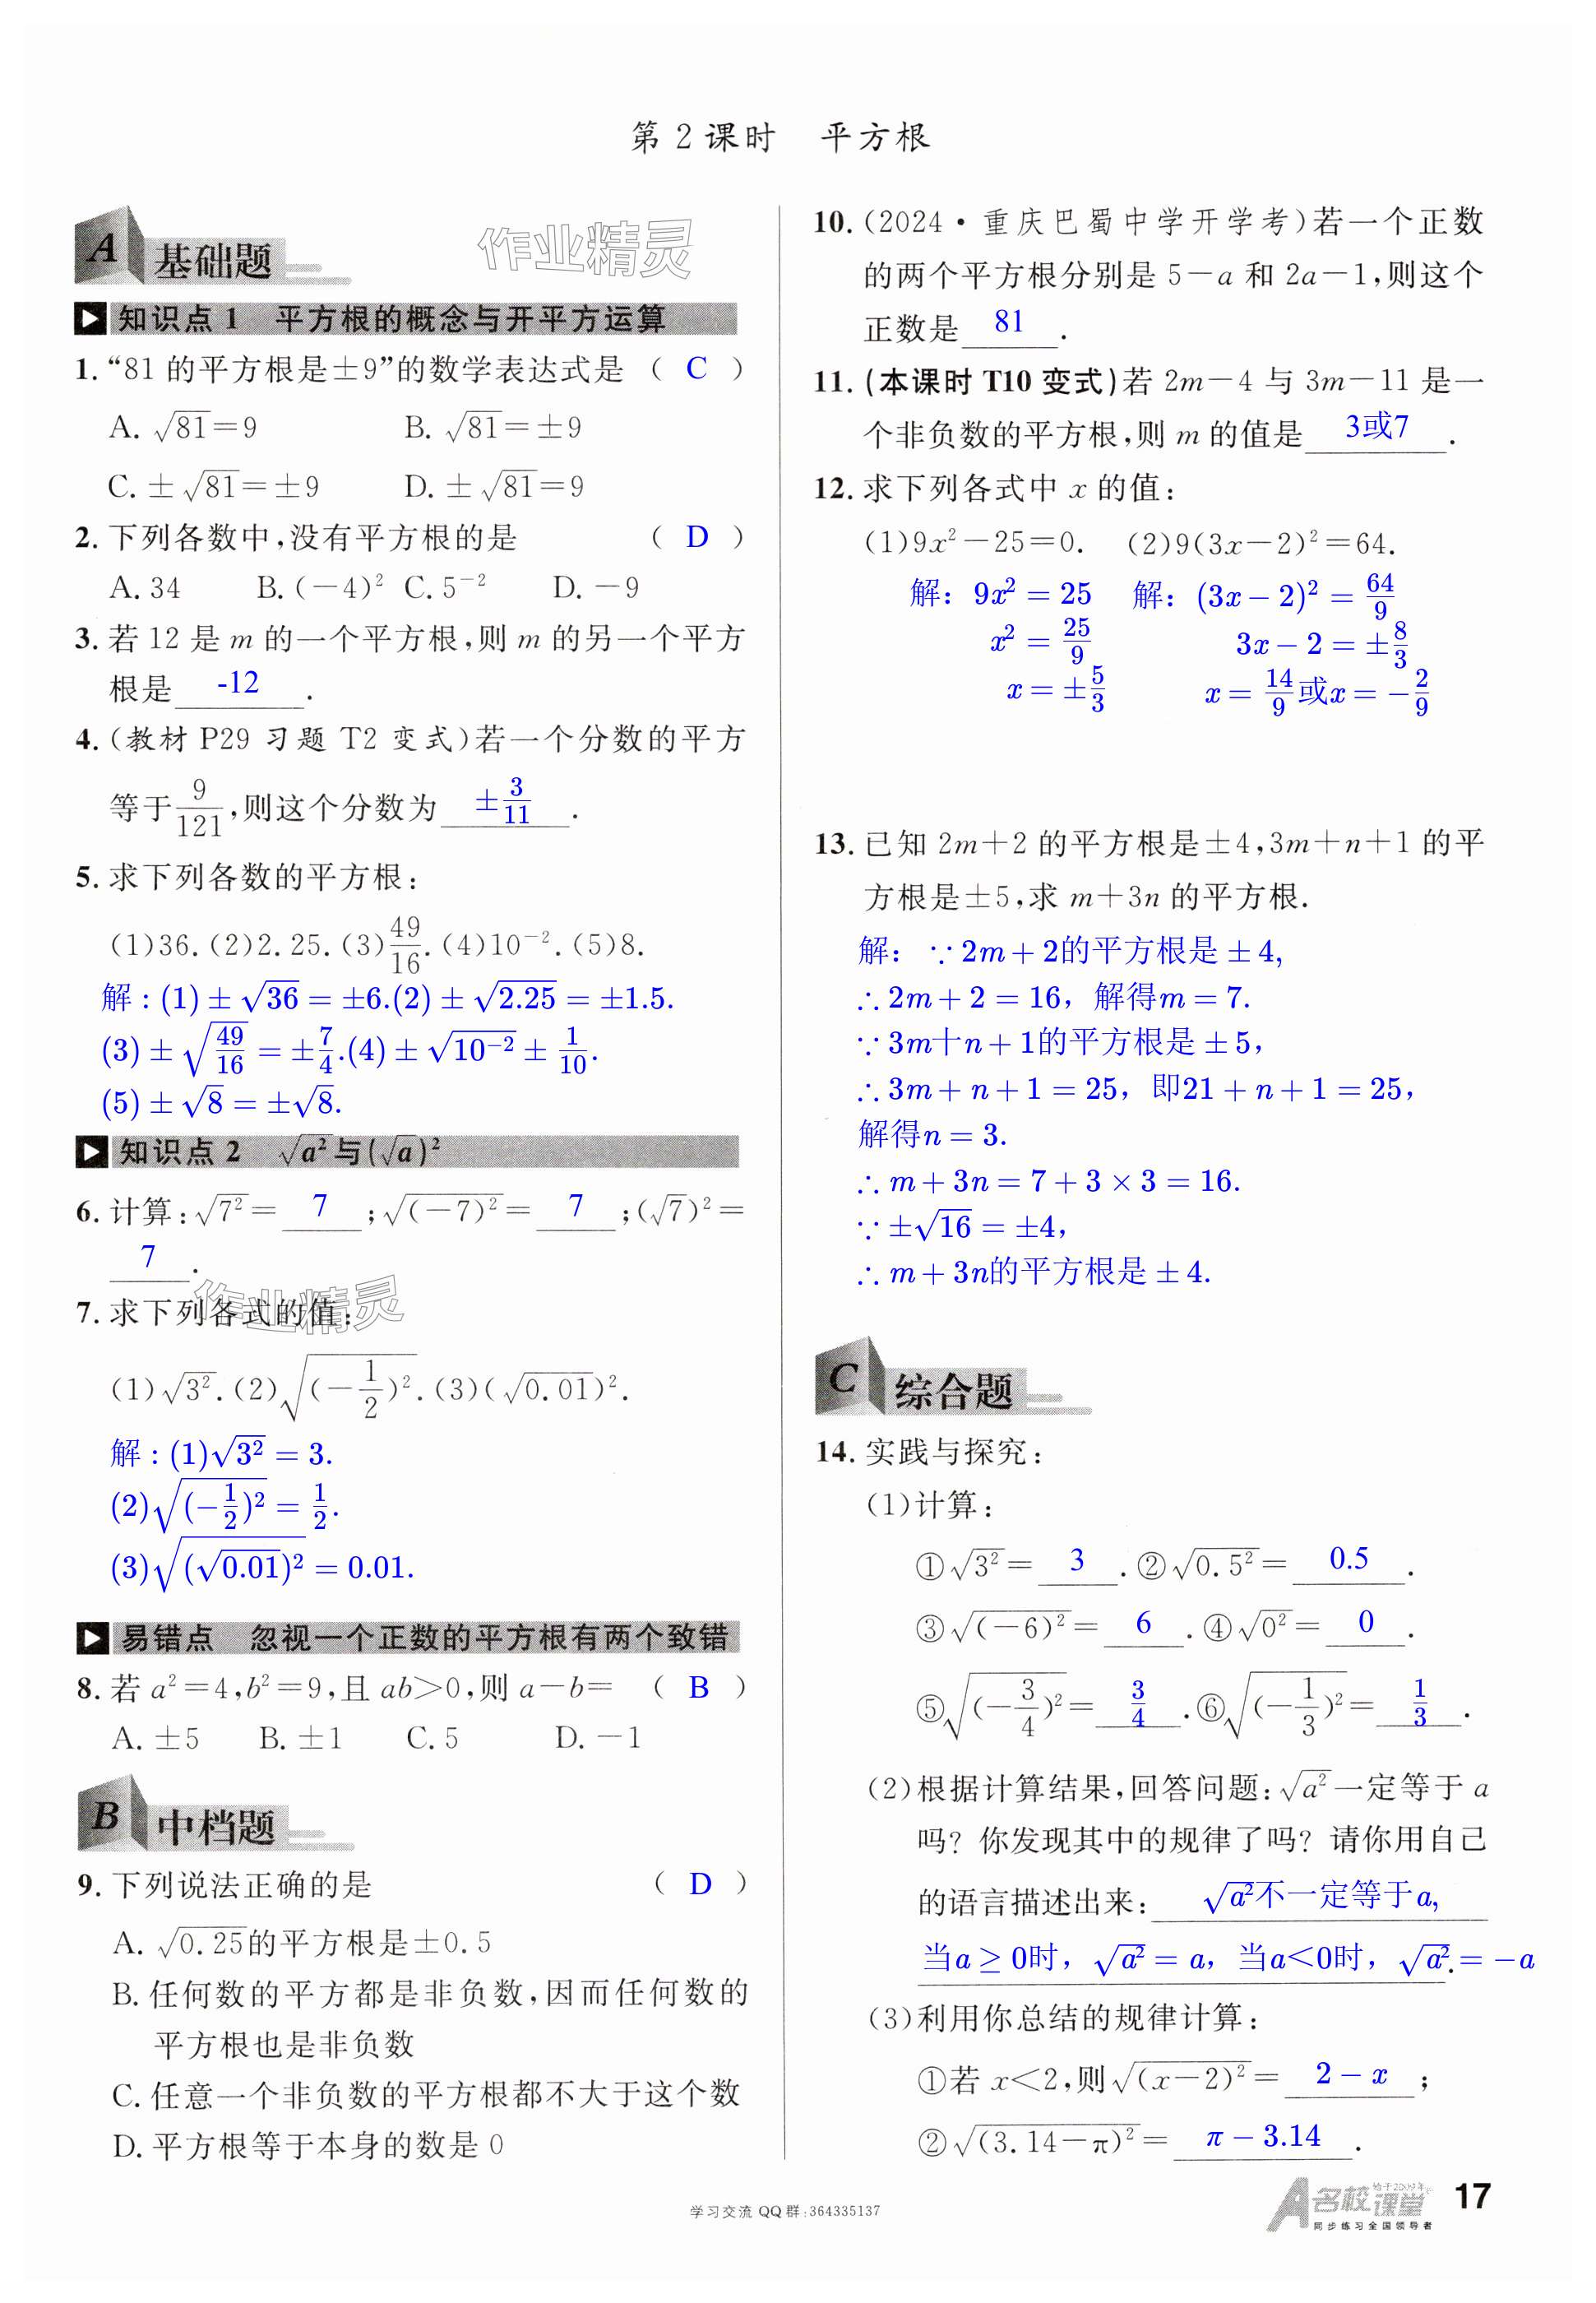 第 2 课时　平方根
A 基础题
作业精灵
知识点 1　平方根的概念与开平方运算
1. “81 的平方根是±9”的数学表达式是 （ C ）
A. √81=9　B. √81=±9
C. ±√81=±9　D. ±√81=9
2. 下列各数中,没有平方根的是 （ D ）
A. 34　B. (-4)²　C. 5⁻²　D. -9
3. 若 12 是 m 的一个平方根,则 m 的另一个平方
根是 -12 .
4. (教材 P29 习题 T2 变式)若一个分数的平方
等于 9/121 ,则这个分数为 ±3/11 .
5. 求下列各数的平方根:
(1)36. (2)2.25. (3)49/16. (4)10⁻². (5)8.
解：(1)±√36 = ±6.(2)±√2.25 = ±1.5.
(3)±√(49/16) = ±7/4.(4)±√(10⁻²) ± 1/10.
(5)±√8 = ±√8.
知识点 2　√a²与(√a)²
6. 计算:√7²= 7 ;√(-7)²= 7 ;(√7)²=
7 .
作业精灵
7. 求下列各式的值:
(1)√3². (2)√(-1/2)². (3)(√0.01)².
解：(1)√3² = 3.
(2)√(-1/2)² = 1/2.
(3)√(√0.01)² = 0.01.
易错点　忽视一个正数的平方根有两个致错
8. 若 a²=4,b²=9,且 ab>0,则 a-b= （ B ）
A. ±5　B. ±1　C. 5　D. -1
B 中档题
9. 下列说法正确的是 （ D ）
A. √0.25的平方根是±0.5
B. 任何数的平方都是非负数,因而任何数的
平方根也是非负数
C. 任意一个非负数的平方根都不大于这个数
D. 平方根等于本身的数是 0
10. (2024·重庆巴蜀中学开学考)若一个正数
的两个平方根分别是 5-a 和 2a-1,则这个
正数是 81 .
11. (本课时 T10 变式)若 2m-4 与 3m-11 是一
个非负数的平方根,则 m 的值是 3或7 .
12. 求下列各式中 x 的值:
(1)9x²-25=0.　(2)9(3x-2)²=64.
解：9x² = 25　解：(3x-2)² = 64/9
x² = 25/9　3x-2 = ±8/3
x = ±5/3　x = 14/9或x = -2/9
13. 已知 2m+2 的平方根是±4,3m+n+1 的平
方根是±5,求 m+3n 的平方根.
解：∵2m+2的平方根是±4,
∴2m+2 = 16，解得m = 7.
∵3m十n+1的平方根是±5，
∴3m+n+1 = 25，即21+n+1 = 25，
解得n = 3.
∴m+3n = 7+3×3 = 16.
∵±√16 = ±4，
∴m+3n的平方根是±4.
C 综合题
14. 实践与探究:
(1)计算:
①√3²= 3 . ②√0.5²= 0.5 .
③√(-6)²= 6 . ④√0²= 0 .
⑤√(-3/4)²= 3/4 . ⑥√(-1/3)²= 1/3 .
(2)根据计算结果,回答问题:√a²一定等于 a
吗？你发现其中的规律了吗？请你用自己
的语言描述出来: √a²不一定等于a,
当a≥0时，√a² = a，当a<0时，√a². = -a
(3)利用你总结的规律计算:
①若 x<2,则√(x-2)²= 2-x ;
②√(3.14-π)²= π-3.14 .
学习交流 QQ 群:364335137
A 名校课堂 始于2009年
同步练习全国领导者
17